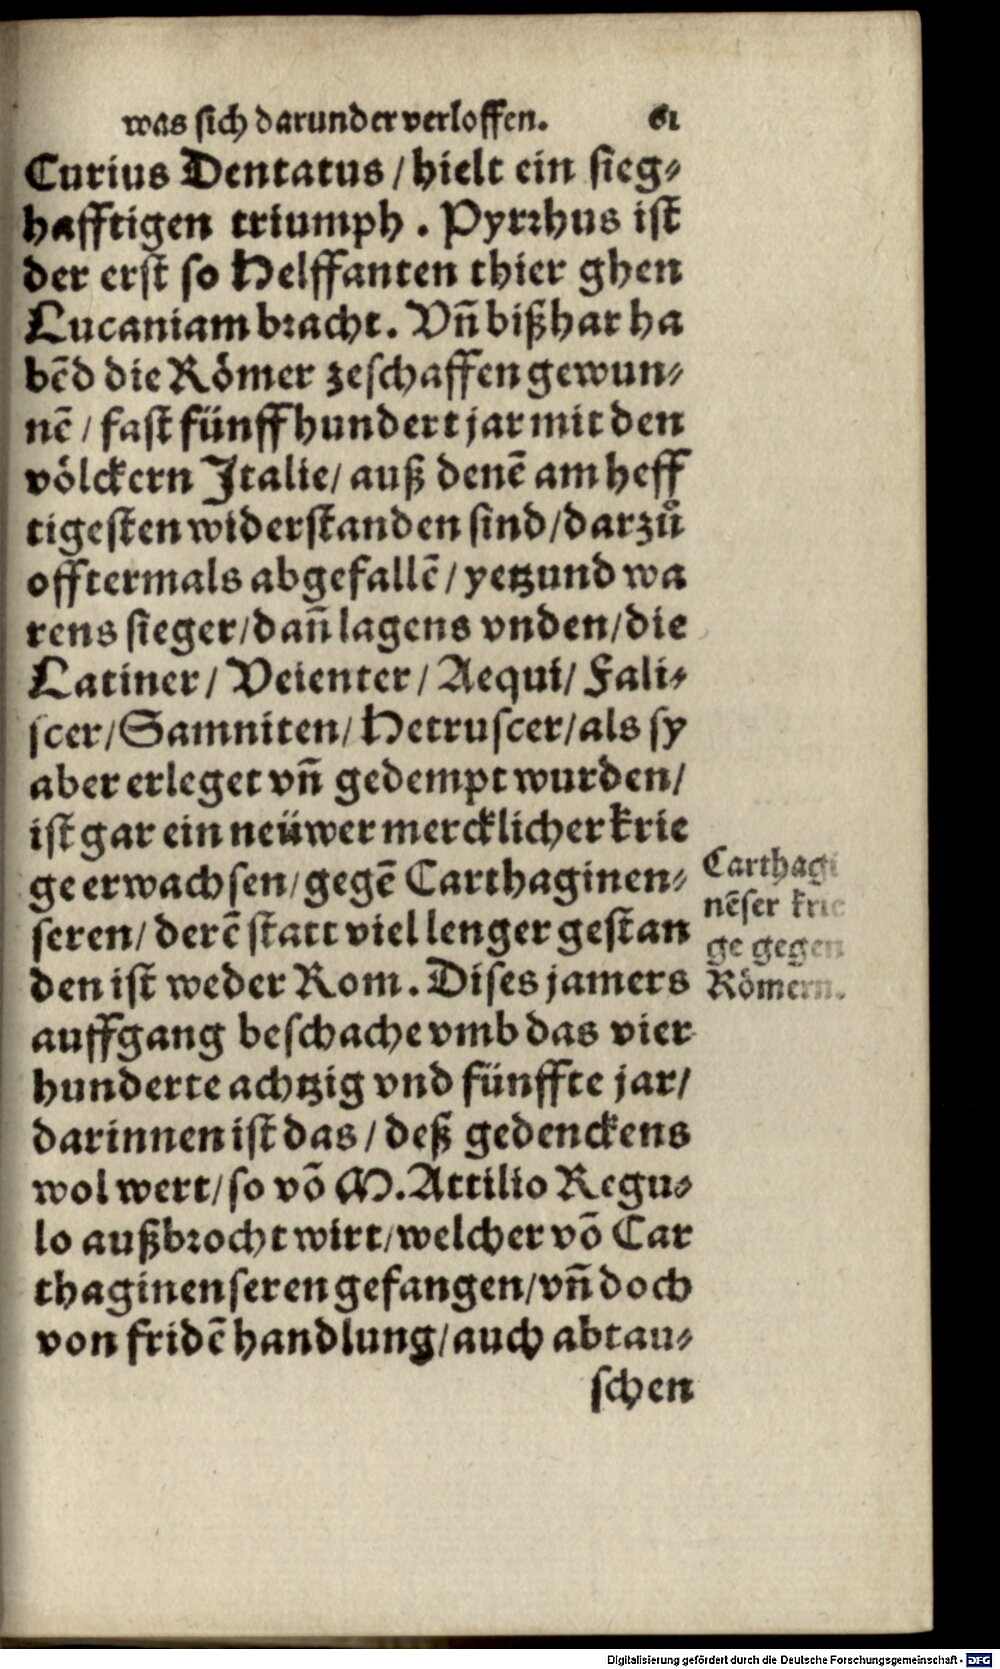 was sich darunder verloffen. 61
Curius Dentatus / hielt ein sieg⸗
hafftigen triumph . Pyrrhus ist
der erst so Helffanten thier ghen
Lucaniam bracht. Vñ bißhar ha
bēd die Römer zeschaffen gewun⸗
nē / fast fünff hundert jar mit den
völckern Italie / auß denē am heff
tigesten widerstanden sind / darzů
offtermals abgefallē / yetzund wa
rens sieger / dañ lagens vnden / die
Latiner / Veienter / Aequi / Fali⸗
scer / Samniten / Hetruscer / als sy
aber erleget vñ gedempt wurden /
ist gar ein neüwer mercklicher krie
ge erwachsen / gegē Carthaginen⸗
seren / derē statt viel lenger gestan
den ist weder Rom. Dises jamers
auffgang beschache vmb das vier
hunderte achtzig vnd fünffte jar /
darinnen ist das / deß gedenckens
wol wert / so vō M. Attilio Regu⸗
lo außbrocht wirt / welcher vō Car
thaginenseren gefangen / vñ doch
von fridē handlung / auch abtau⸗
schen
Carthagi
nēser krie
ge gegen
Römern.
Digitalisierung gefördert durch die Deutsche Forschungsgemeinschaft - DFG